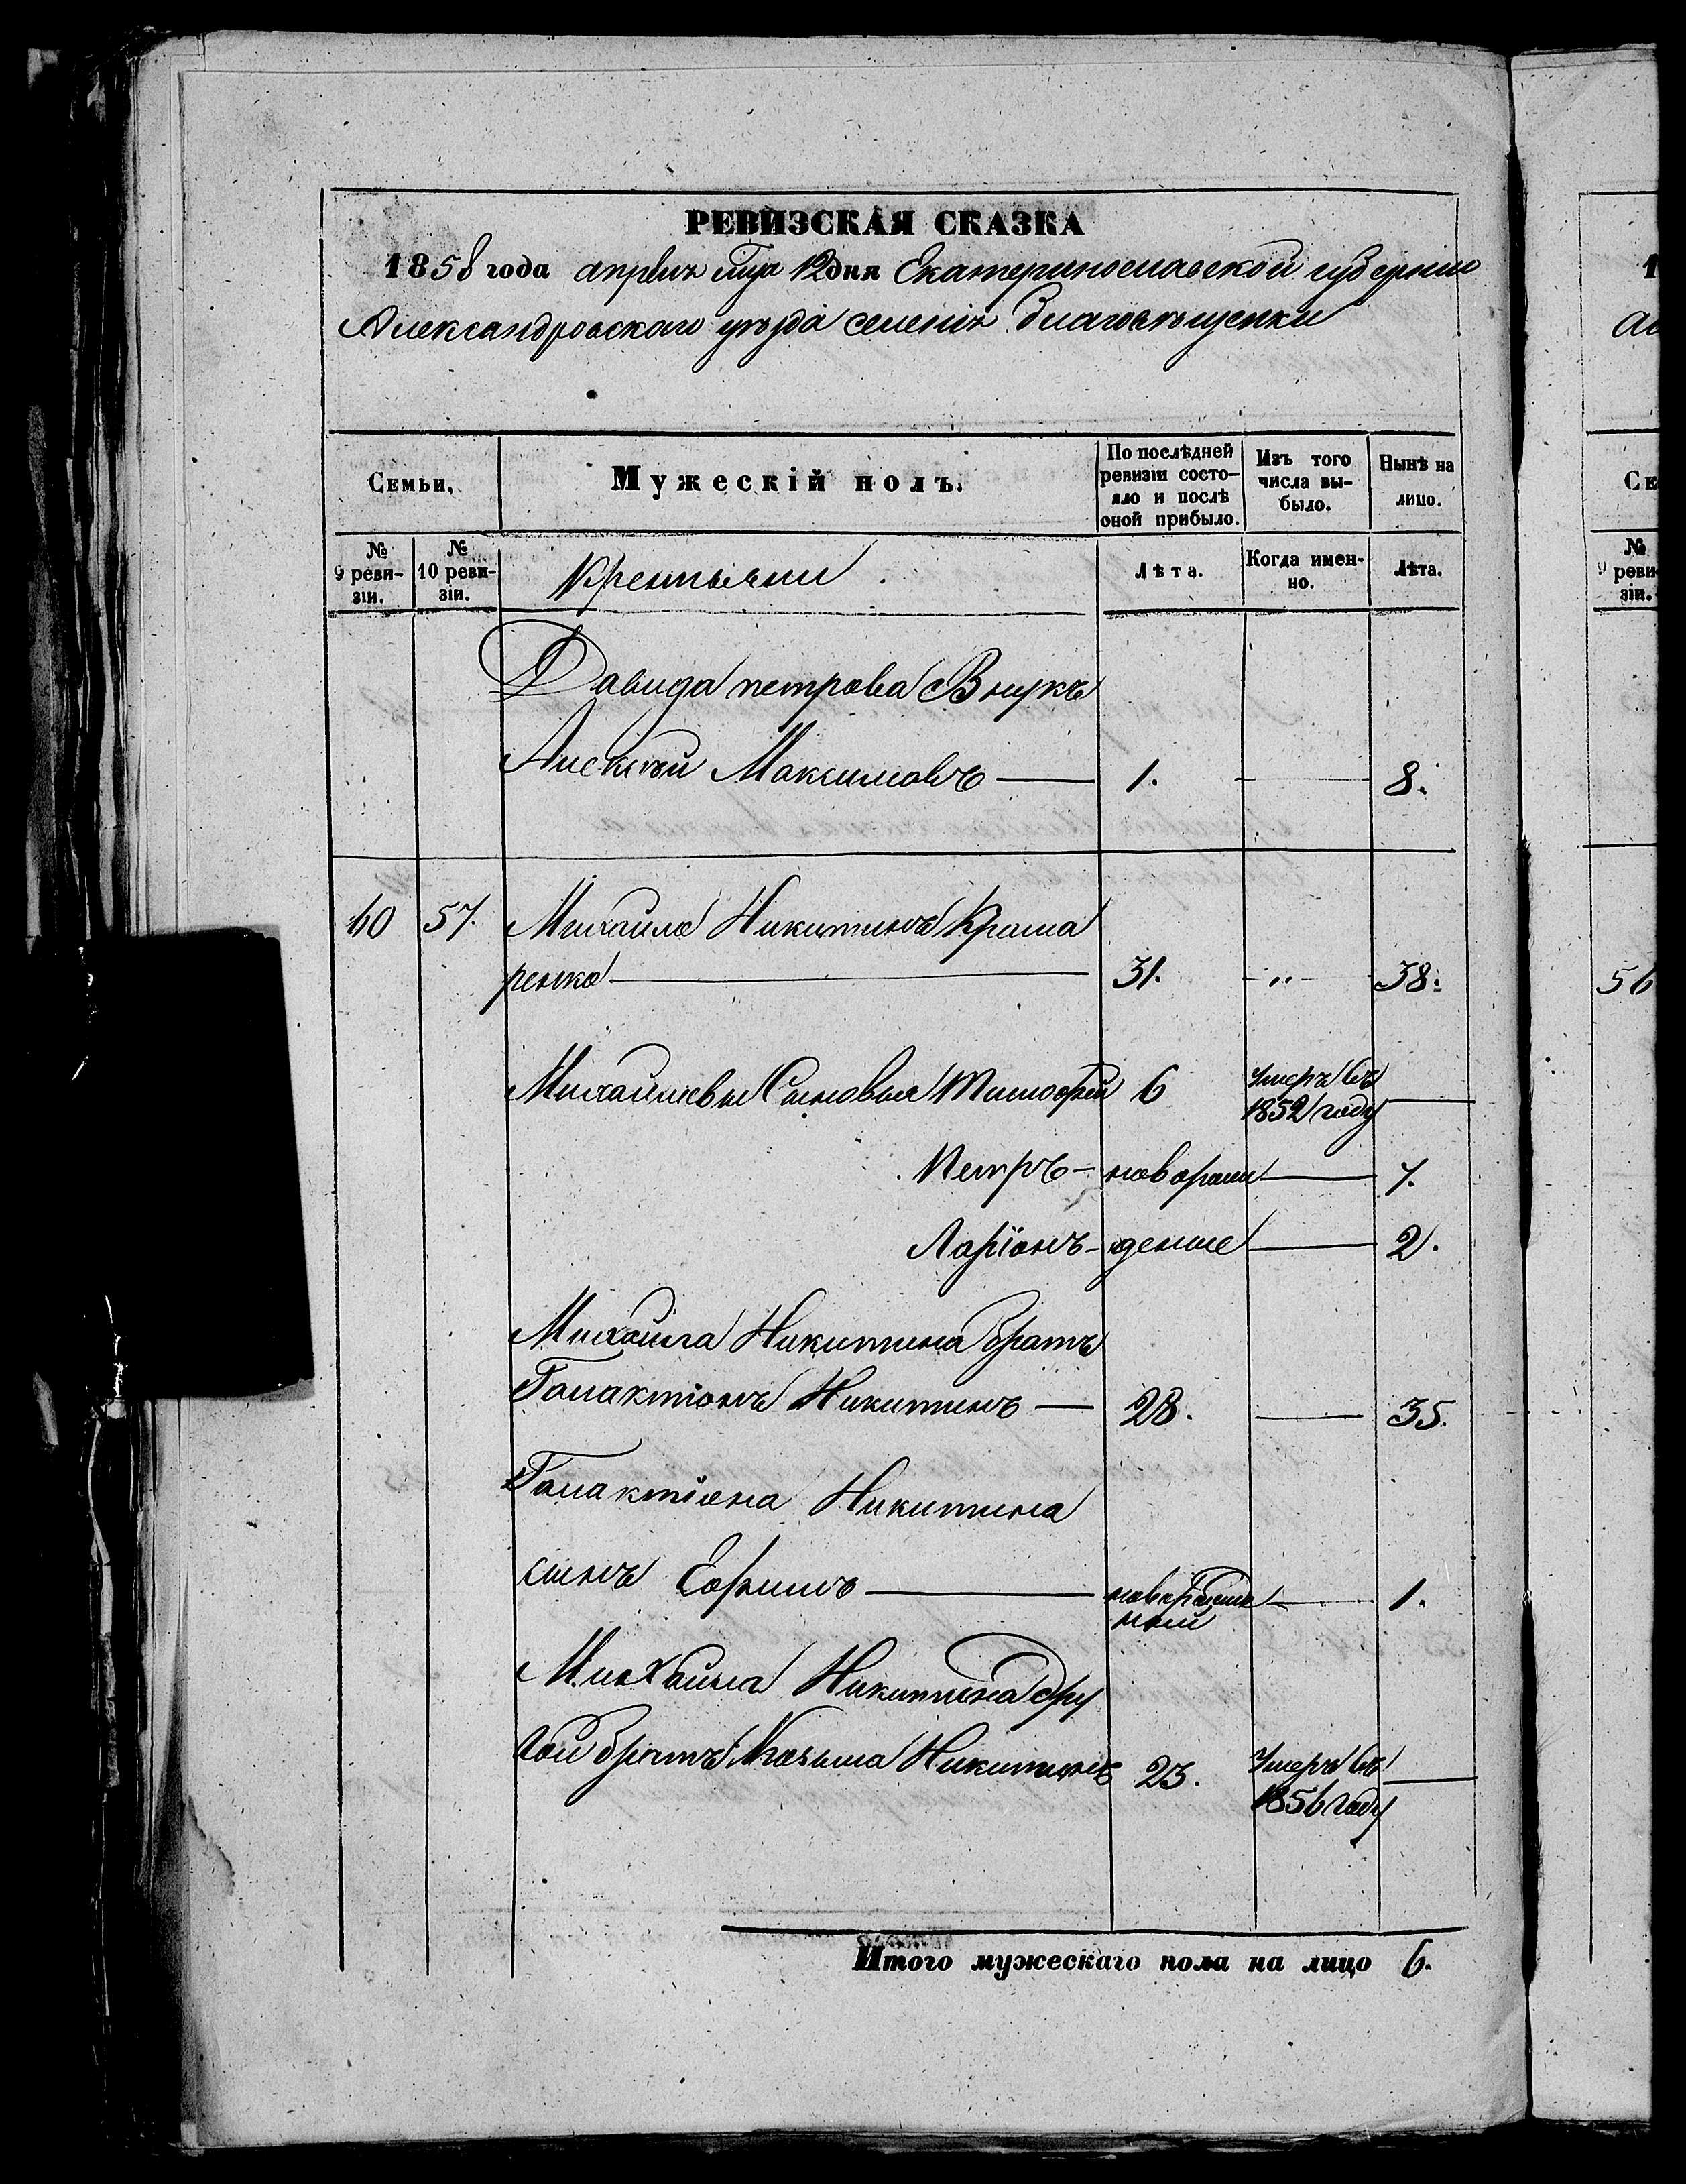 РЕВИЗСКАЯ СКАЗКА
1858 года апреля мца 12 дня Екатеринославской губернии
Александровскаго уѣзда селенія Благовѣщенки
Семьи,
Мужескій полъ.
По послѣдней ревизіи состояло и послѣ оной прибыло.
Изъ того числа выбыло.
Нынѣ на лицо.
№ 9 ревизіи.
№ 10 ревизіи.
Крестьяни
Лѣта.
Когда именно.
Лѣта.
Давида петрова Внукъ
Алексѣй Максимовъ 1. 8.
60 57. Михайла Никитинъ Крама
ренко 31. " 38.
Михайлевы Сыновья Тимофей 6 Умеръ въ
1852 году
Петръ - новорож 7.
Ларіонъ - денные 2.
Михайла Никитина братъ
Галактіонъ Никитинъ 28. 35.
Галактіона Никитина
сынъ Ефимъ новорожден 1.
ный
Михайла Никитина дру
гой братъ Козьма Никитинъ 23. Умеръ въ
1856 году
Итого мужескаго пола на лицо 6.
1
Се
№
9 реви
зіи.
56